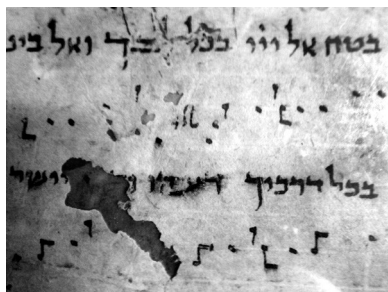 בטח אל ייי בכל לבך ואל בינ
בכל דרכיך דעהו יישר